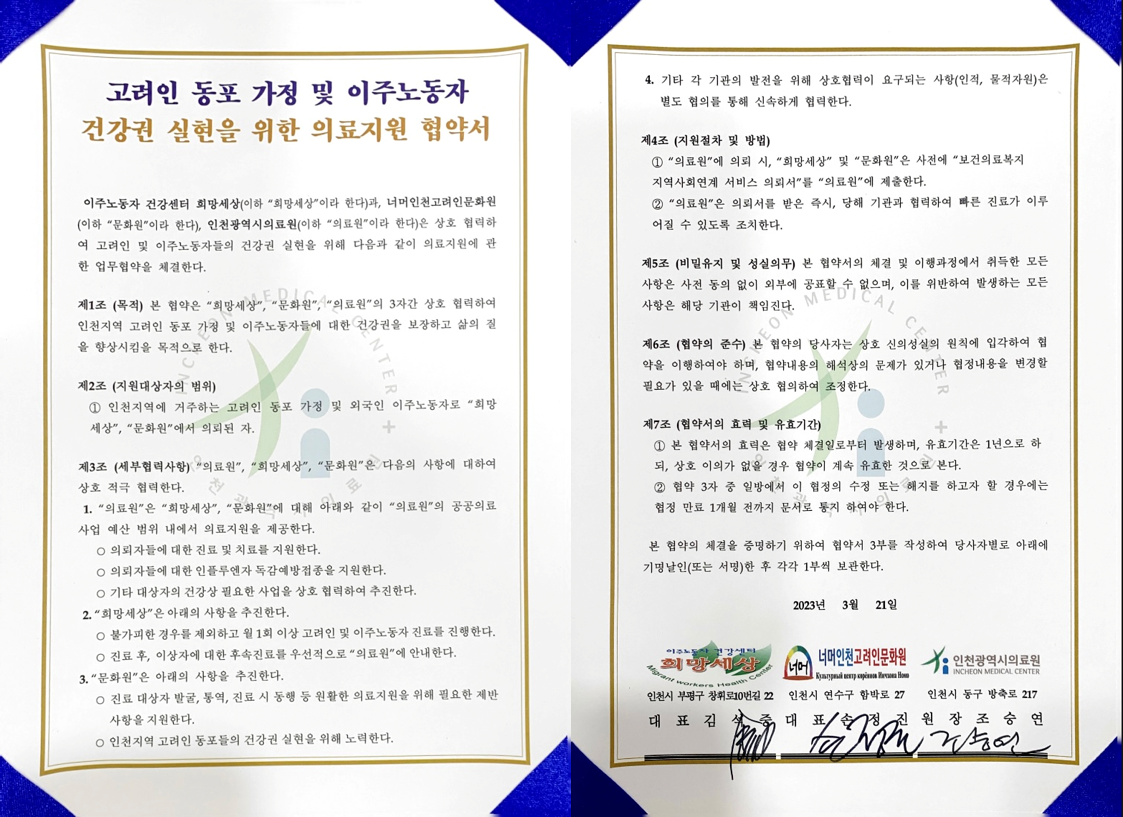 고려인 동포 가정 및 이주노동자
건강권 실현을 위한 의료지원 협약서
이주노동자 건강센터 희망세상(이하 "희망세상"이라 한다)과, 너머인천고려인문화원
(이하 "문화원"이라 한다), 인천광역시의료원(이하 "의료원"이라 한다)은 상호 협력하
여 고려인 및 이주노동자들의 건강권 실현을 위해 다음과 같이 의료지원에 관
한 업무협약을 체결한다.
제1조 (목적) 본 협약은 "희망세상", "문화원", "의료원"의 3자간 상호 협력하여
인천지역 고려인 동포 가정 및 이주노동자들에 대한 건강권을 보장하고 삶의 질
을 향상시킴을 목적으로 한다.
제2조 (지원대상자의 범위)
① 인천지역에 거주하는 고려인 동포 가정 및 외국인 이주노동자로 "희망
세상", "문화원"에서 의뢰된 자.
제3조 (세부협력사항) "의료원", "희망세상", "문화원"은 다음의 사항에 대하여
상호 적극 협력한다.
1. "의료원"은 "희망세상", "문화원"에 대해 아래와 같이 "의료원"의 공공의료
사업 예산 범위 내에서 의료지원을 제공한다.
○ 의뢰자들에 대한 진료 및 치료를 지원한다.
○ 의뢰자들에 대한 인플루엔자 독감예방접종을 지원한다.
○ 기타 대상자의 건강상 필요한 사업을 상호 협력하여 추진한다.
2. "희망세상"은 아래의 사항을 추진한다.
○ 불가피한 경우를 제외하고 월 1회 이상 고려인 및 이주노동자 진료를 진행한다.
○ 진료 후, 이상자에 대한 후속진료를 우선적으로 "의료원"에 안내한다.
3. "문화원"은 아래의 사항을 추진한다.
○ 진료 대상자 발굴, 통역, 진료 시 동행 등 원활한 의료지원을 위해 필요한 제반
사항을 지원한다.
○ 인천지역 고려인 동포들의 건강권 실현을 위해 노력한다.
INCHEON MEDICAL CENTER +
인천광역시의료원
4. 기타 각 기관의 발전을 위해 상호협력이 요구되는 사항(인적, 물적자원)은
별도 협의를 통해 신속하게 협력한다.
제4조 (지원절차 및 방법)
① "의료원"에 의뢰 시, "희망세상" 및 "문화원"은 사전에 "보건의료복지
지역사회연계 서비스 의뢰서"를 "의료원"에 제출한다.
② "의료원"은 의뢰서를 받은 즉시, 당해 기관과 협력하여 빠른 진료가 이루
어질 수 있도록 조치한다.
제5조 (비밀유지 및 성실의무) 본 협약서의 체결 및 이행과정에서 취득한 모든
사항은 사전 동의 없이 외부에 공표할 수 없으며, 이를 위반하여 발생하는 모든
사항은 해당 기관이 책임진다.
제6조 (협약의 준수) 본 협약의 당사자는 상호 신의성실의 원칙에 입각하여 협
약을 이행하여야 하며, 협약내용의 해석상의 문제가 있거나 협정내용을 변경할
필요가 있을 때에는 상호 협의하여 조정한다.
제7조 (협약서의 효력 및 유효기간)
① 본 협약서의 효력은 협약 체결일로부터 발생하며, 유효기간은 1년으로 하
되, 상호 이의가 없을 경우 협약이 계속 유효한 것으로 본다.
② 협약 3자 중 일방에서 이 협정의 수정 또는 해지를 하고자 할 경우에는
협정 만료 1개월 전까지 문서로 통지 하여야 한다.
본 협약의 체결을 증명하기 위하여 협약서 3부를 작성하여 당사자별로 아래에
기명날인(또는 서명)한 후 각각 1부씩 보관한다.
INCHEON MEDICAL CENTER +
인천광역시의료원
2023년 3월 21일
이주노동자 건강센터
희망세상
Migrant workers Health Center
너머
너머인천고려인문화원
Культурный центр корёинов Инчхона Номо
인천광역시의료원
INCHEON MEDICAL CENTER
인천시 부평구 장휘로10번길 22 인천시 연수구 함박로 27 인천시 동구 방축로 217
대 표 김 석 중 대 표 손 정 진 원 장 조 승 연
조승연